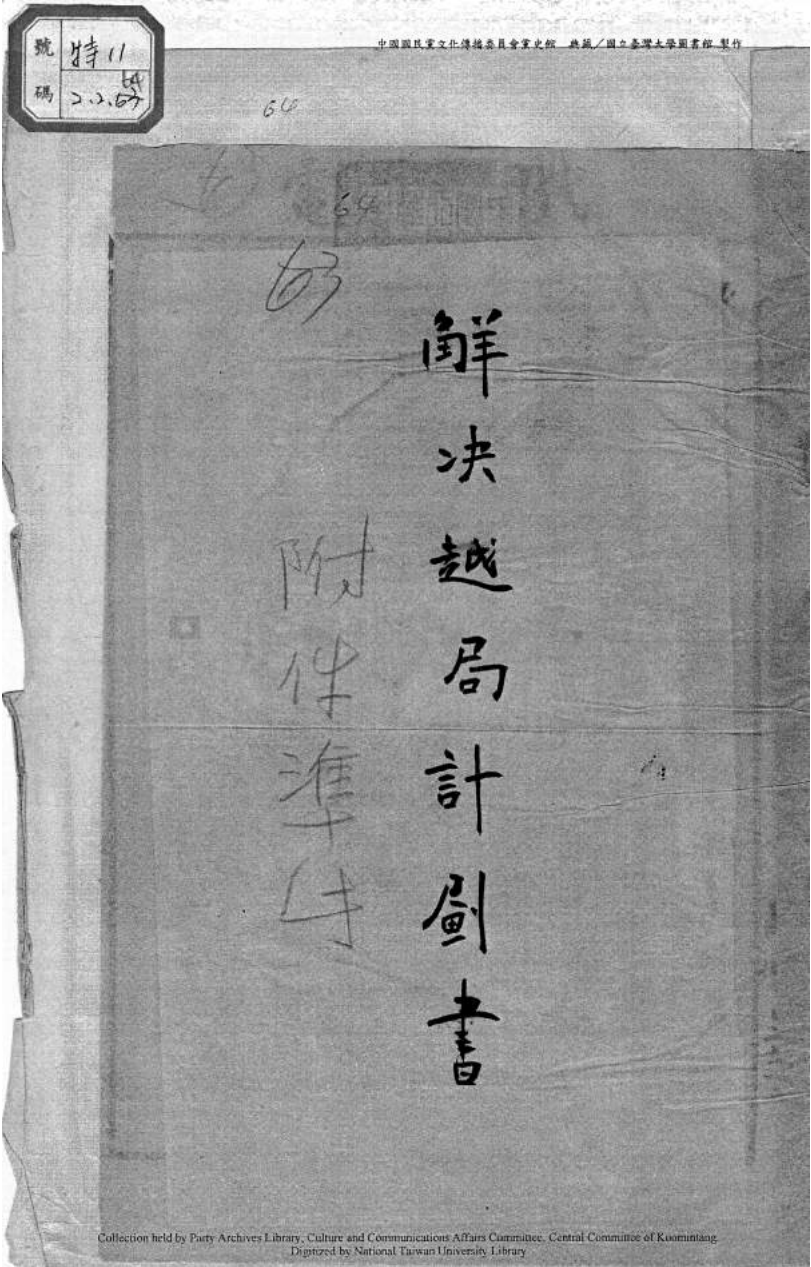 號碼
特11
64
2.2.63
中國國民黨文化傳播委員會黨史館 典藏／國立臺灣大學圖書館 製作
64
64
63
解决越局計劃書
附件準件
Collection held by Party Archives Library, Culture and Communications Affairs Committee, Central Committee of Kuomintang.
Digitized by National Taiwan University Library